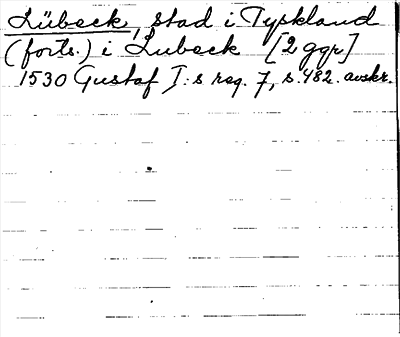 Lübeck, stad i Tyskland
(forts.) i Lubeck [2 ggr]
1530 Gustaf I:s reg. 7, s. 482. avskr.